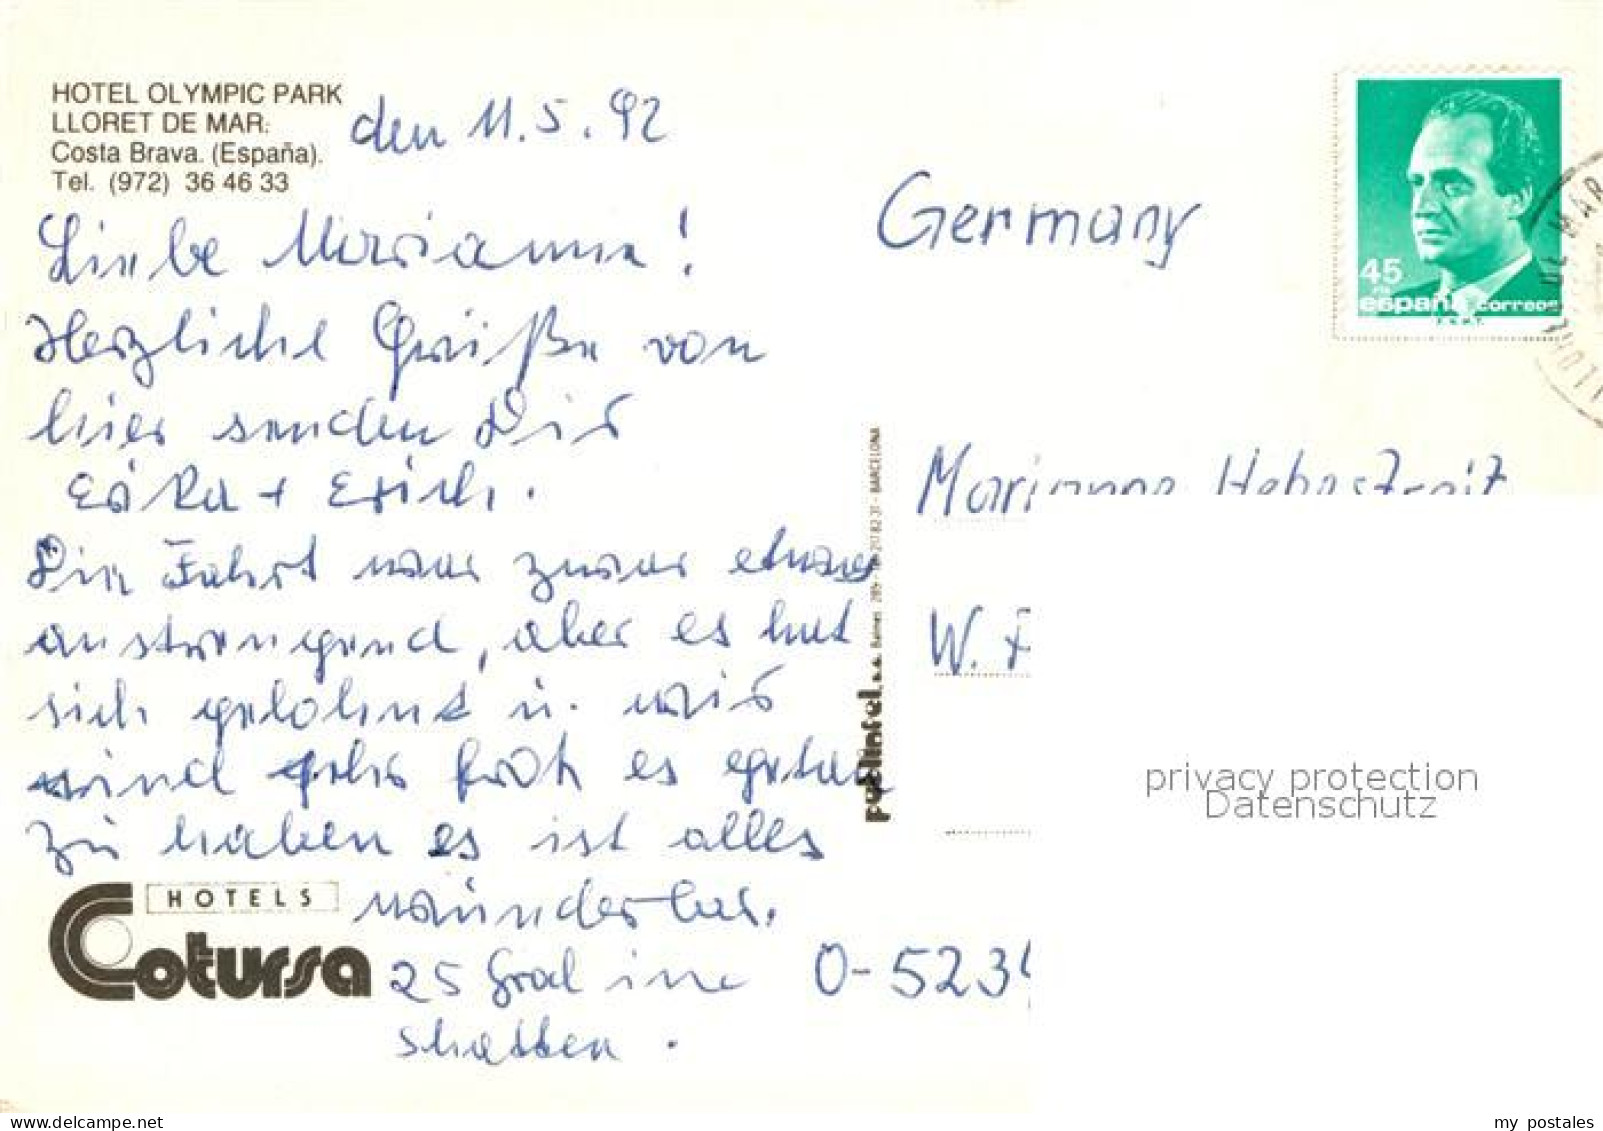 HOTEL OLYMPIC PARK
LLORET DE MAR.
Costa Brava. (España).
Tel. (972) 36 46 33
den 11.5.92
Liebe Marianne!
Herzliche Grüße von
hier senden Dir
Erika + Erich.
Die Fahrt war zwar etwas
anstrengend, aber es hat
sich gelohnt u. wir
sind sehr froh es getan
zu haben es ist alles
wunderbar.
25 Grad im
Schatten.
HOTELS
Cotursa
publintel s.a.
BARCELONA
Germany
45
españa correos
F.N.M.T.
Marianne Hebestreit
W.
O-523
privacy protection
Datenschutz
my postales